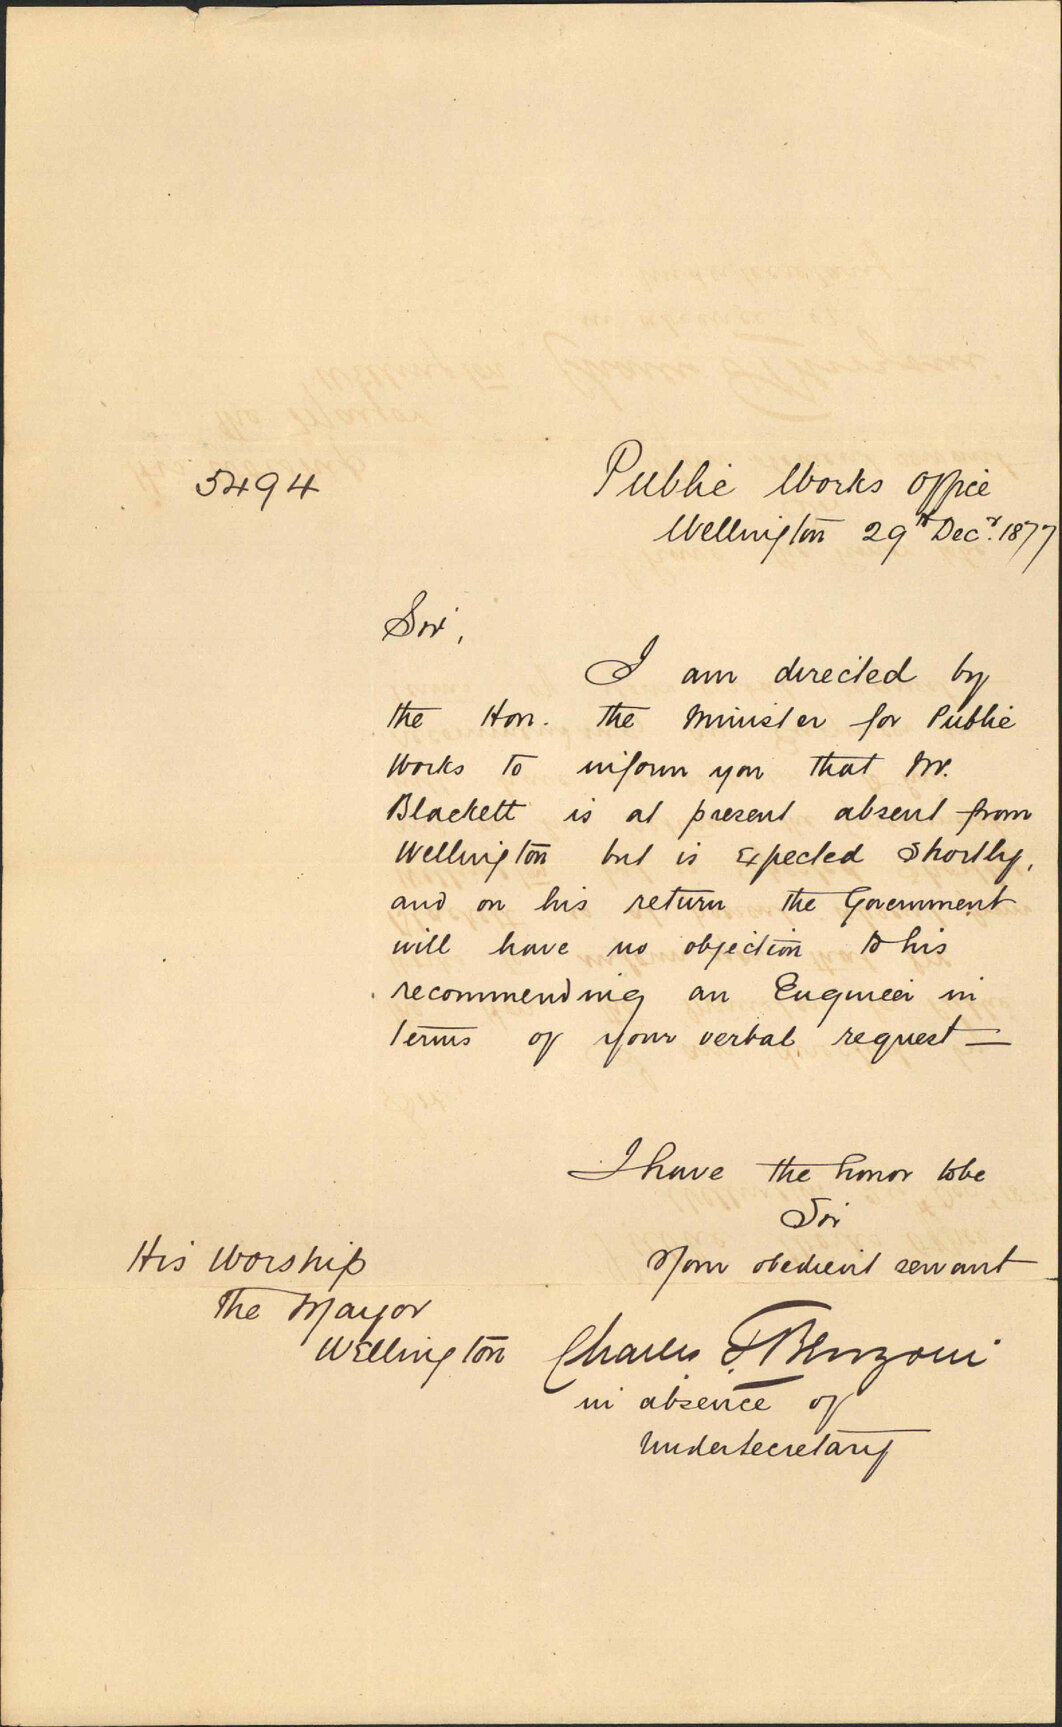 5494
Public Works Office
Wellington 29th Decr. 1877
Sir,
I am directed by
the Hon. the Minister for Public
Works to inform you that Mr.
Blackett is at present absent from
Wellington but is expected shortly,
and on his return the Government
will have no objection to his
recommending an Engineer in
terms of your verbal request —
I have the honor to be
Sir
Your obedient servant
Charles T. Benzoni
in absence of
Undersecretary
His Worship
The Mayor
Wellington